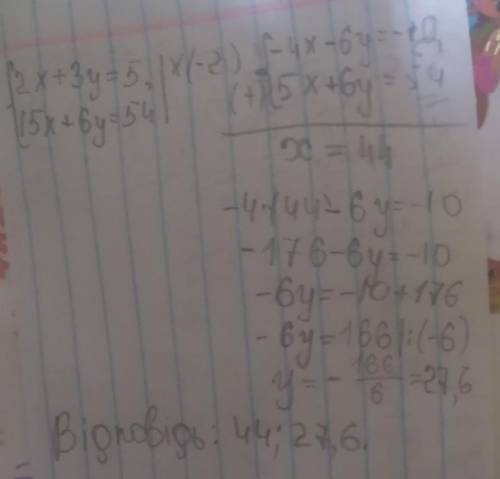 {2x+3y=5, | ×(-2)
{5x+6y=54 |
{-4x-6y=-10,
(+) {5x+6y=54
x = 44
-4·44-6y=-10
-176-6y=-10
-6y=-10+176
-6y=166 |:(-6)
y=-166/6=27,6
Відповідь: 44; 27,6.